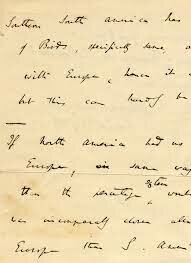 Southern South America has
of Birds, specifically same, a
with Europe, hence it
but this can hardly be
If North America had as
Europe, in same way
then the percentage, would
was incomparably closer allied
Europe than S. Ameri